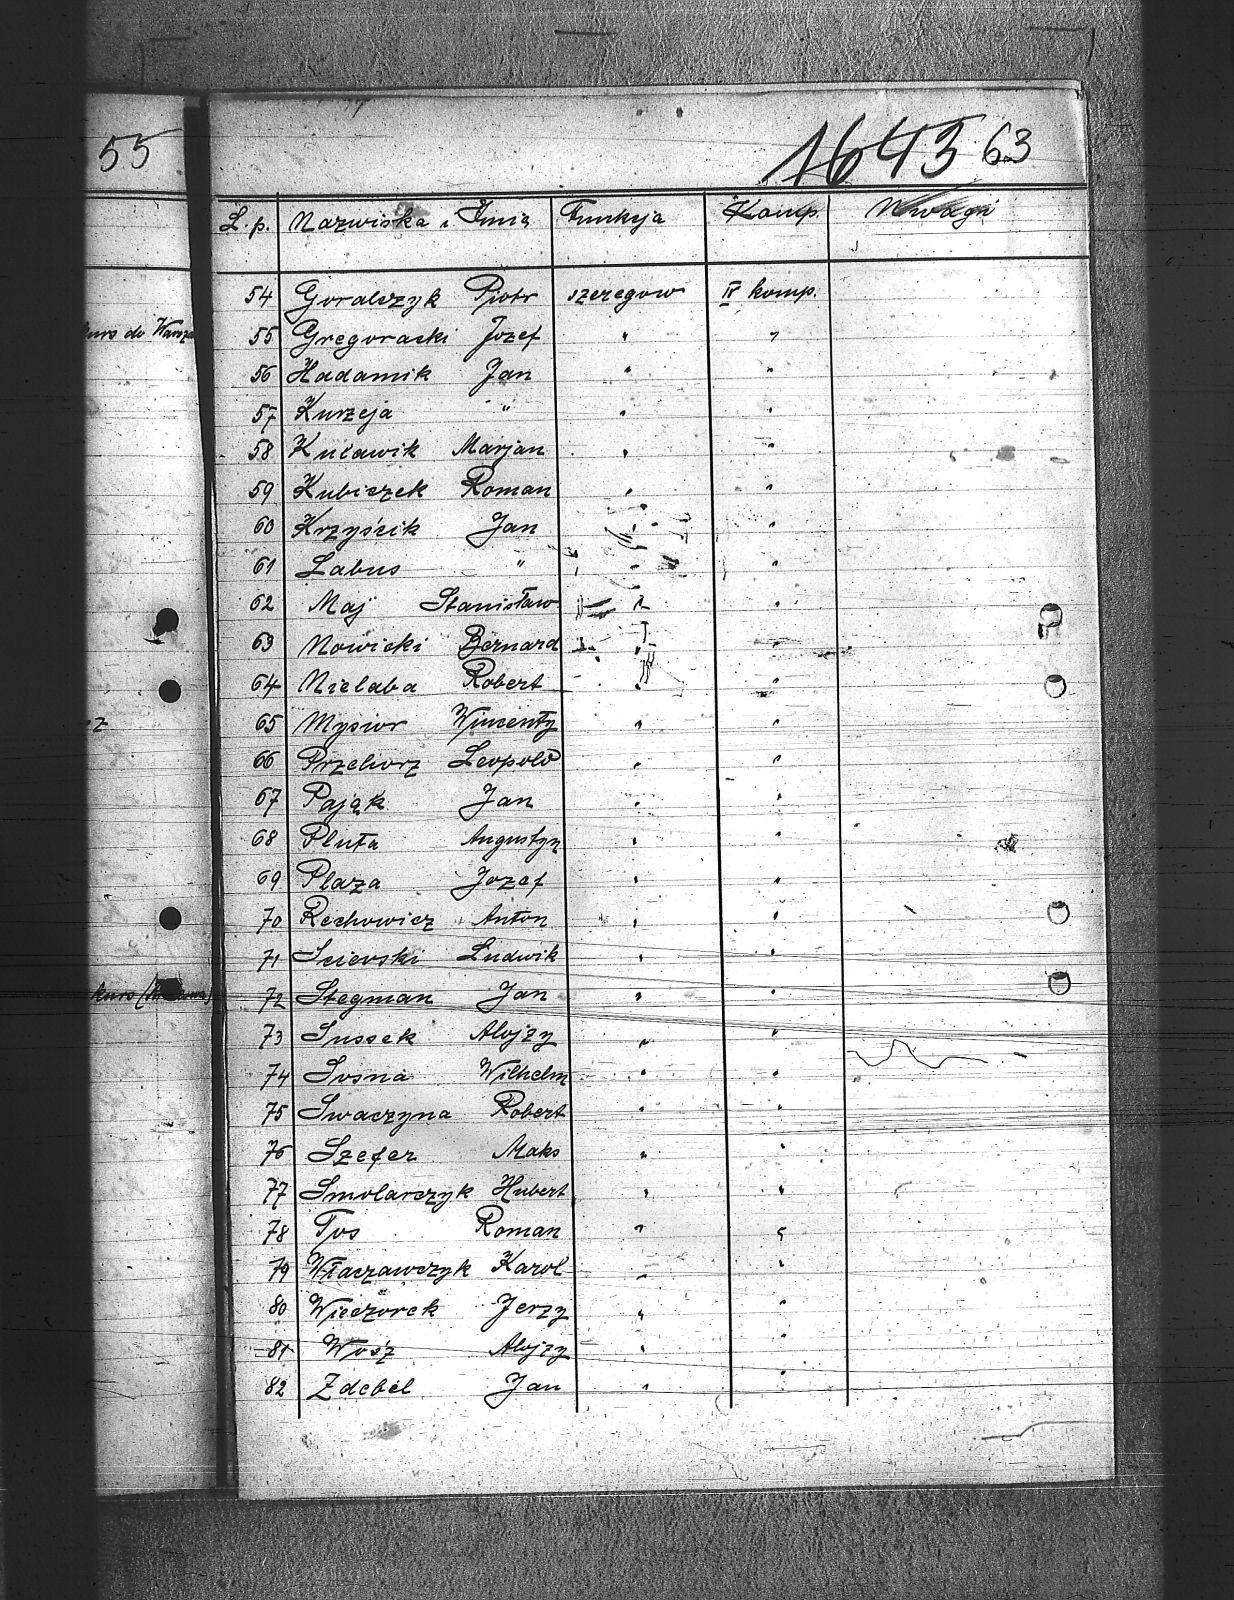 55
kurs do Warsza
kurs (
1643 63
L. p. Nazwiska i Imię Funkcja Komp. Uwagi
54 Goralczyk Piotr szeregow IV komp.
55 Gregoracki Jozef " "
56 Hadamik Jan " "
57 Kurzeja " " "
58 Kuławik Marjan " "
59 Kubiczek Roman " "
60 Krzyścik Jan " "
61 Labus " " "
62 Maj Stanisław " "
63 Nowicki Bernard " "
64 Nielaba Robert " "
65 Mysior Wincenty " "
66 Przeliorz Leopold " "
67 Pająk Jan " "
68 Pluta Augustyn " "
69 Plaza Jozef " "
70 Rechowicz Anton " "
71 Scierski Ludwik " "
72 Stegman Jan " "
73 Sussek Alojzy " "
74 Sosna Wilhelm " "
75 Swaczyna Robert " "
76 Szefer Maks " "
77 Smolarczyk Hubert " "
78 Tos Roman " "
79 Właczawczyk Karol " "
80 Wieczorek Jerzy " "
81 Wośz Alojzy " "
82 Zdebel Jan " "